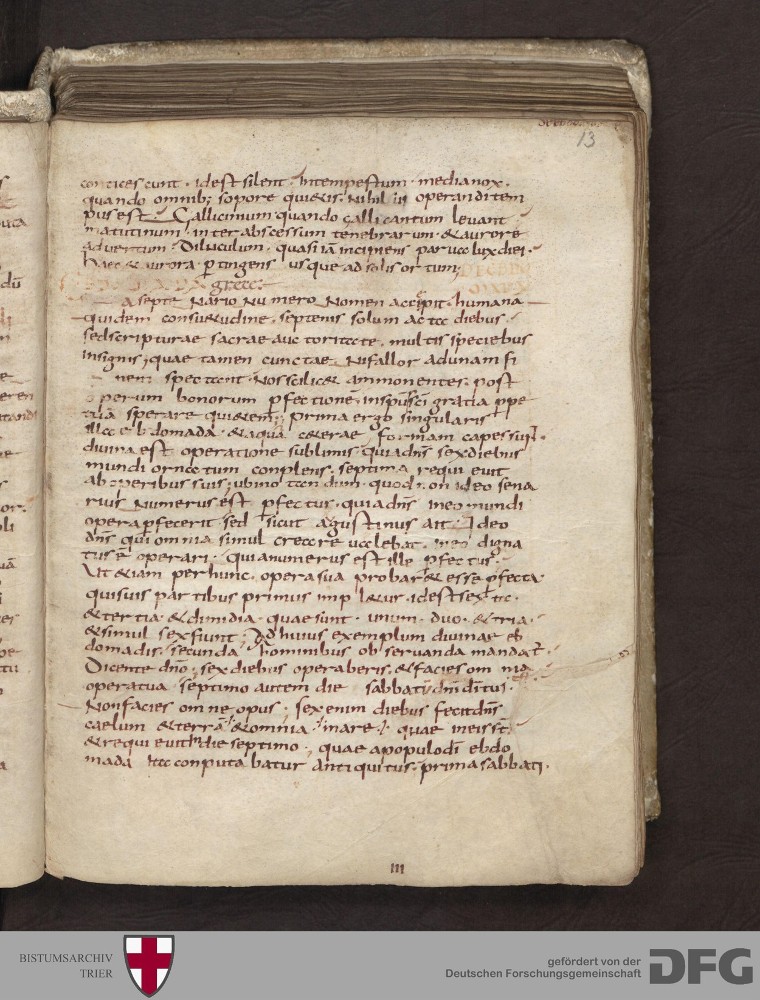 13
conticescunt · id est silent · Intempestum · media nox ·
quando omnib; sopore quietis · Nihil operandi tem
pus est · Gallicinium quando galli cantum levant
matutinum · inter abscessum tenebrarum · & aurore
adventum · Diluculum · quasi iā incipiens parua lux diei ·
haec & aurora p tingens usque ad solis ortum;
grece ·
septenario Numero Nomen accipit · humana
quidem consu&udine · septenis solum ac tcc diebus ·
sed scripturae sacrae auctoritate · multis speciebus
insignis; quae tamen cunctae Nifallor ad unam fi
nem spectant Nos scilic& ammonentes · post
operum bonorum pfectionē in sp̄u sc̄i gratia ppe
tuā sperare qui&em; prima ergo singularis
illa ebdomada · & a qua c&erae formam capessunt ·
divina est operatione sublimis quia dn̄s sex diebus
mundi ornatum conplens · septima requi evit
ab operibus suis; ubi notandum · quod non ideo sena
rius Numerus est pfectus · quia dn̄s in eo mundi
opera pfecerit sed sicut agustinus ait · Ideo
dn̄s qui omnia simul creare volebat · in eo digna
tus ē operari · quia numerus est ille pfectus ·
Ut &iam per hunc · opera sua probar& esse pfecta
qui suis partibus primus impl&ur · id est sexta ·
& tertia · & dimidia · quae sunt · unum · duo · & tria ·
& simul sex fiunt · Ad huius exemplum divinae eb
domadis · secunda hominibus observanda mandat ·
Dicente dn̄o · sex diebus operaberis · & facies omnia
opera tua septimo autem die sabbati dn̄i dī tui ·
Non facies omne opus · sex enim diebus fecit dn̄s
caelum & terrā & omnia mare · quae in eis st̄
& requi evit in die septimo · quae a populo dī ebdo
mada ita conputabatur antiquitus · prima sabbati ·
III
BISTUMSARCHIV
TRIER
gefördert von der
Deutschen Forschungsgemeinschaft
DFG